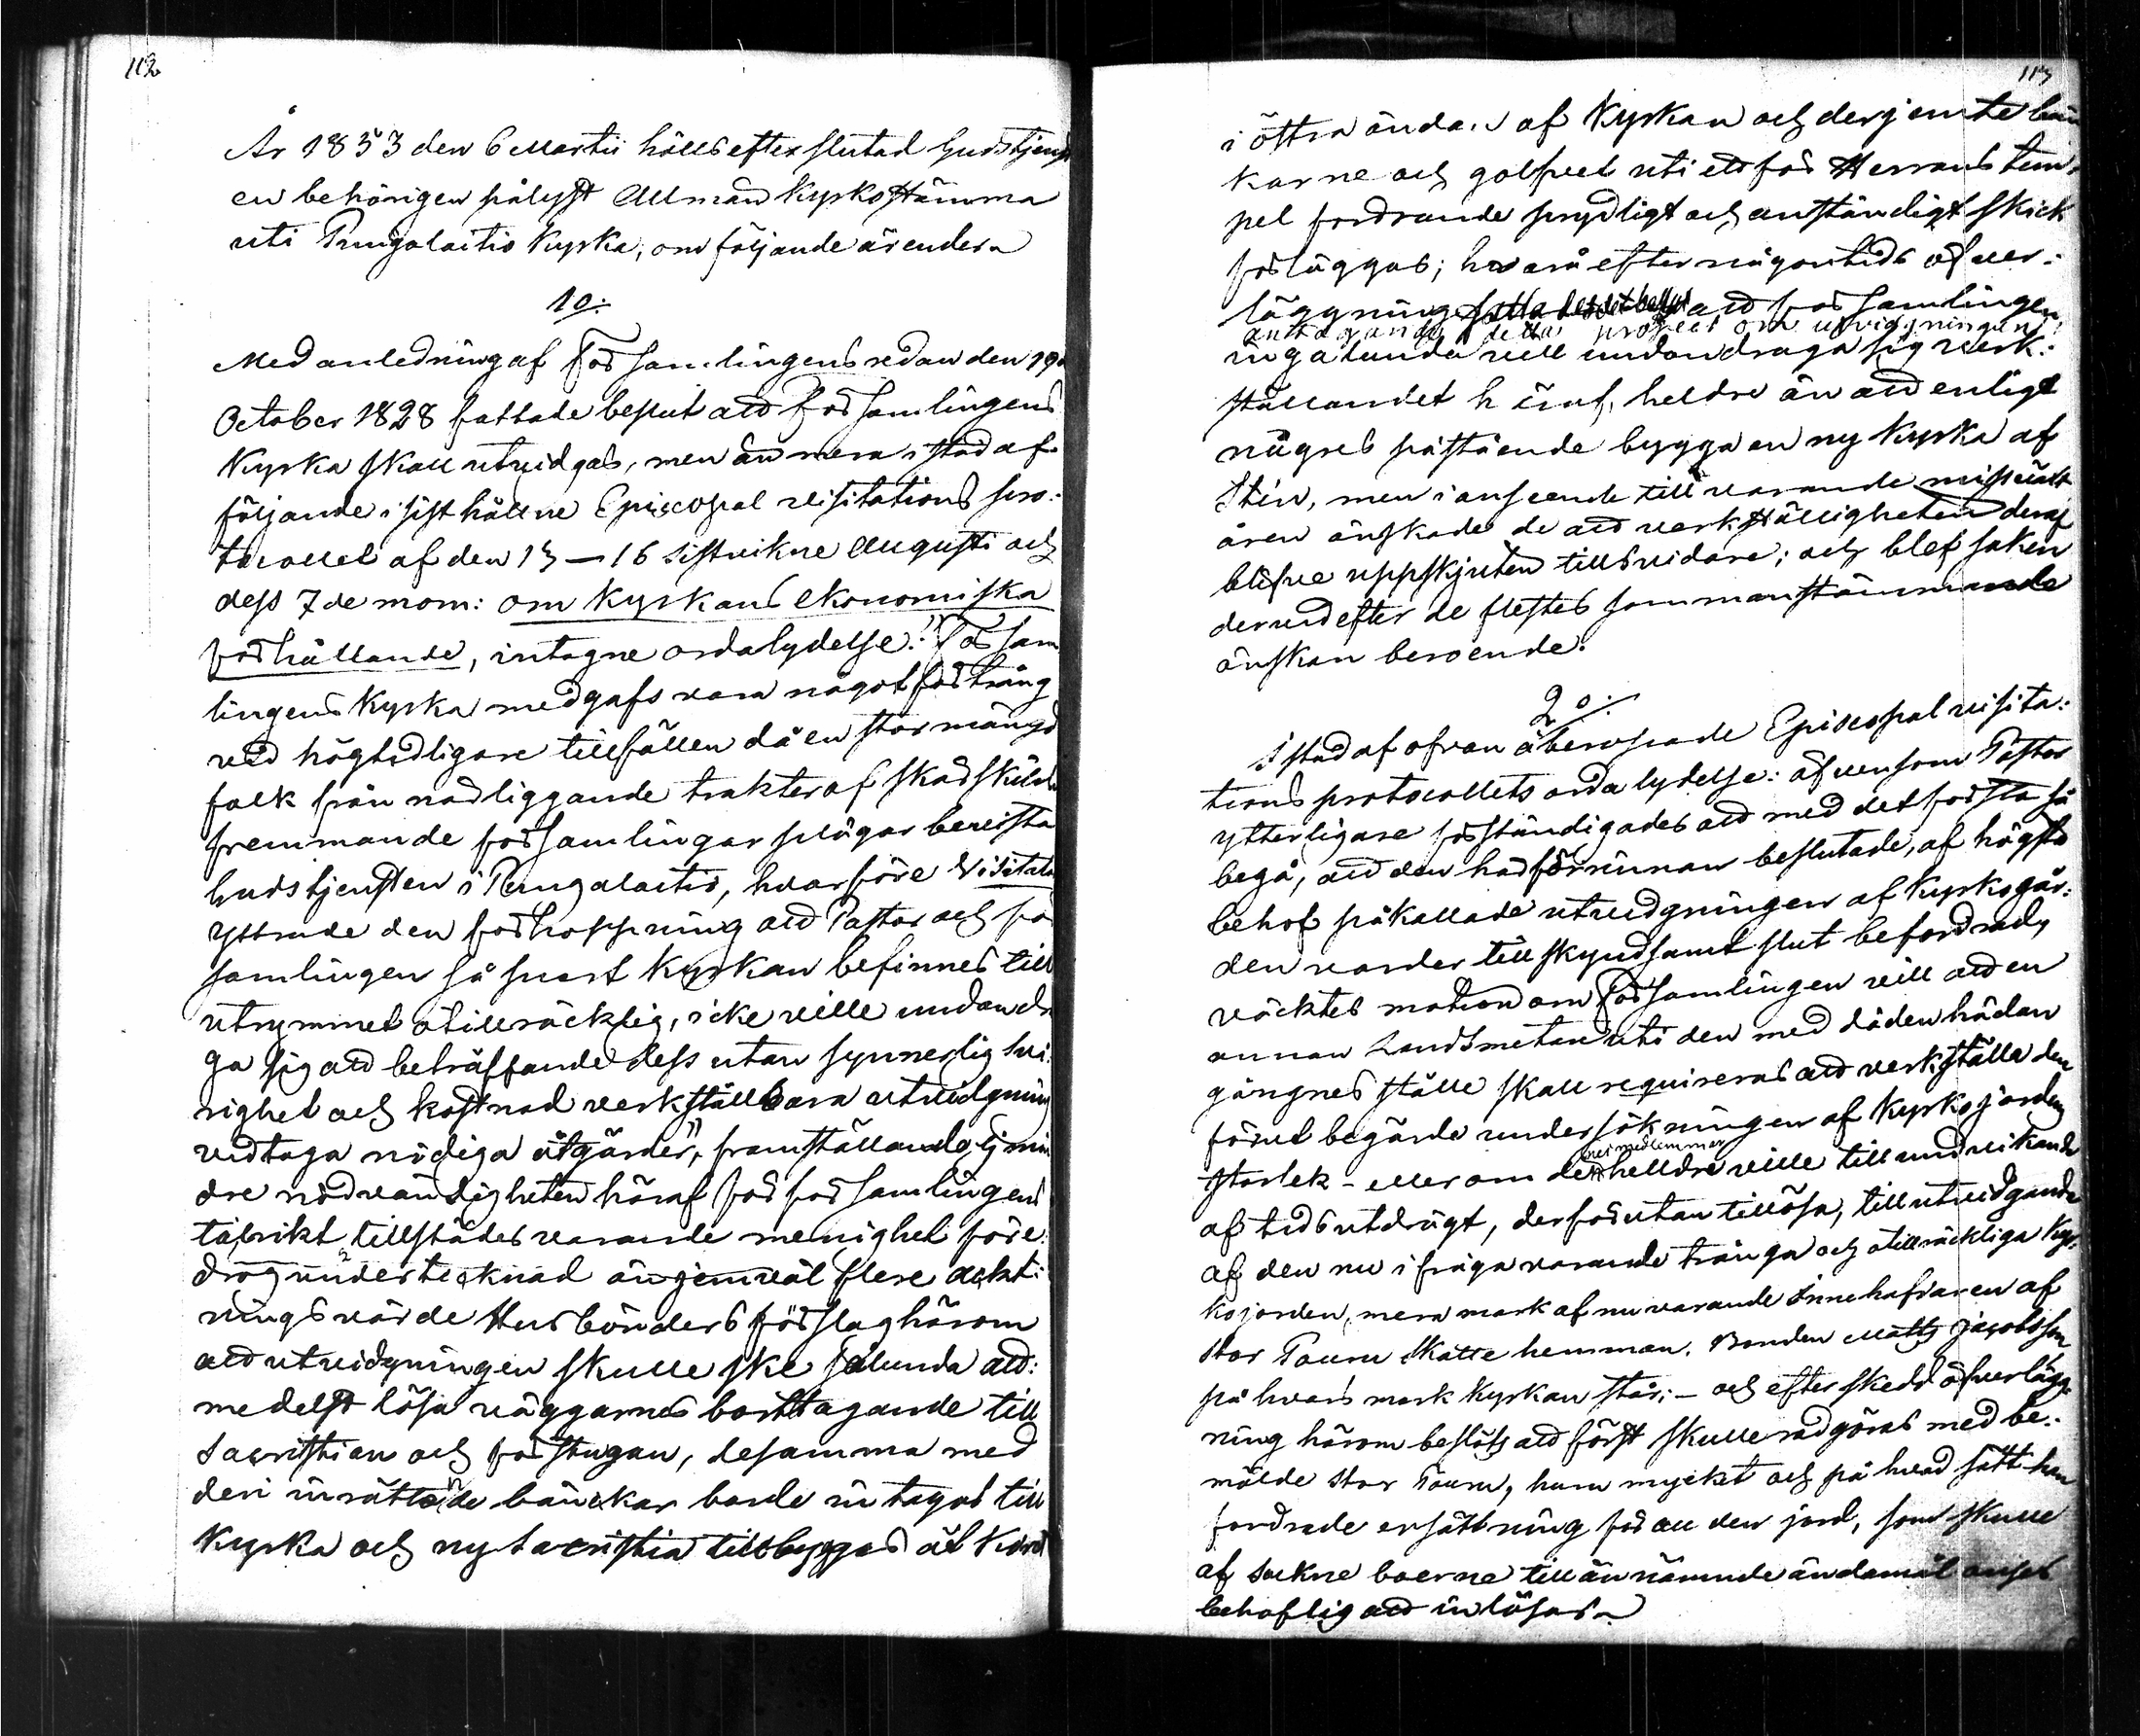 112
År 1853 den 6 Martii hölls efter slutad Gudstjenst
en behörigen pålyst Allmän Kyrkostämma
uti Pungalaitio Kyrka, om följande ärender
1o:
Med anledning af Församlingens redan den 19
October 1828 fattade beslut att Församlingens
Kyrka skall utvidgas, men än mera i stöd af
följande i sist hållne Episcopal visitations pro-
tocollet af den 13–16 sistvikne Augusti och
dess 7de mom: om Kyrkans ekonomiska
förhållande, intagne ordalydelse: "Försam
lingens Kyrka medgafs vara något för trång
vid högtidligare tillfällen då en stor mängd
folk från närliggande trakter af särskilda
fremmande församlingar plägar bevista
Gudstjensten i Pungalaitio, hvarföre Visitator
yttrade den förhoppning att Pastor och för
samlingen så snart Kyrkan befinnes till
utrymmet otillräcklig, icke ville undandra
ga sig att beträffande dess utan synnerlig svå-
righet och kostnad verkställbara utvidgning
vidtaga nödiga åtgärder", framställande ej min
dre nödvändigheten häraf för församlingens
talrikt tillstädesvarande menighet före-
drog undertecknad än jemväl flere akt-
ningsvärde Husbönders förslag härom
att utvidgningen skulle ske sålunda att:
medelst lösa väggarnes borttagande till
Sacristian och förstugan, desamma med
deri inrättade bänckar borde intagas till
Kyrka och ny Sacristia tillbyggas
113
i östra ändan af Kyrkan och derjemte bän
karne och golfvet uti ett för Herrans tem-
pel fordrande prydligt och anständigt skick
förläggas; hvarå efter någon tids öfver-
läggning att församlingen
antagande detta project om utvidgningen
ingalunda vill undandraga sig verk-
ställandet häraf, heldre än att enligt
någres påstående bygga en ny Kyrka af
Sten, men i anseende till varande missväxt
åren önskade de att verkställigheten deraf
blifve uppskjuten tillsvidare; och blef saken
dervid efter de flestes sammanstämmande
önskan beroende.
2o:
I stöd af ofvan åberopade Episcopal visita-
tions protocollets ordalydelse: äfvensom Pastor
ytterligare förständigades att med det första så
begå, att den härförinnan beslutade, af högsta
behof påkallade utvidgningen af Kyrkogår-
den varder till skyndsamt slut befordrad,
väcktes motion om Församlingen vill att en
annan Landtmetare uti den med döden hädan
gångnes ställe skall requireras att verkställa den
förut begärde undersökningen af Kyrkojordens
storlek – eller om dess
medlemmar
helldre ville till undvikande
af tidsutdrägt, derförutan tillösa, till utvidgande
af den nu i fråga varande trånga och otillräckliga Kyr-
kojorden, mera mark af nuvarande Innehafvaren af
Stor Pauru Skatte hemman, Bonden Matts Jacobsson
på hvars mark Kyrkan står; – och efter skedd öfverlägg-
ning härom beslöts att först skulle rådgöras med be-
mälde Stor Pauru, huru mycket och på hvad sätt han
fordrade ersättning för all den jord, som skulle
af Sockneboerne till ännämnde ändamål anses
behöflig att inlösas